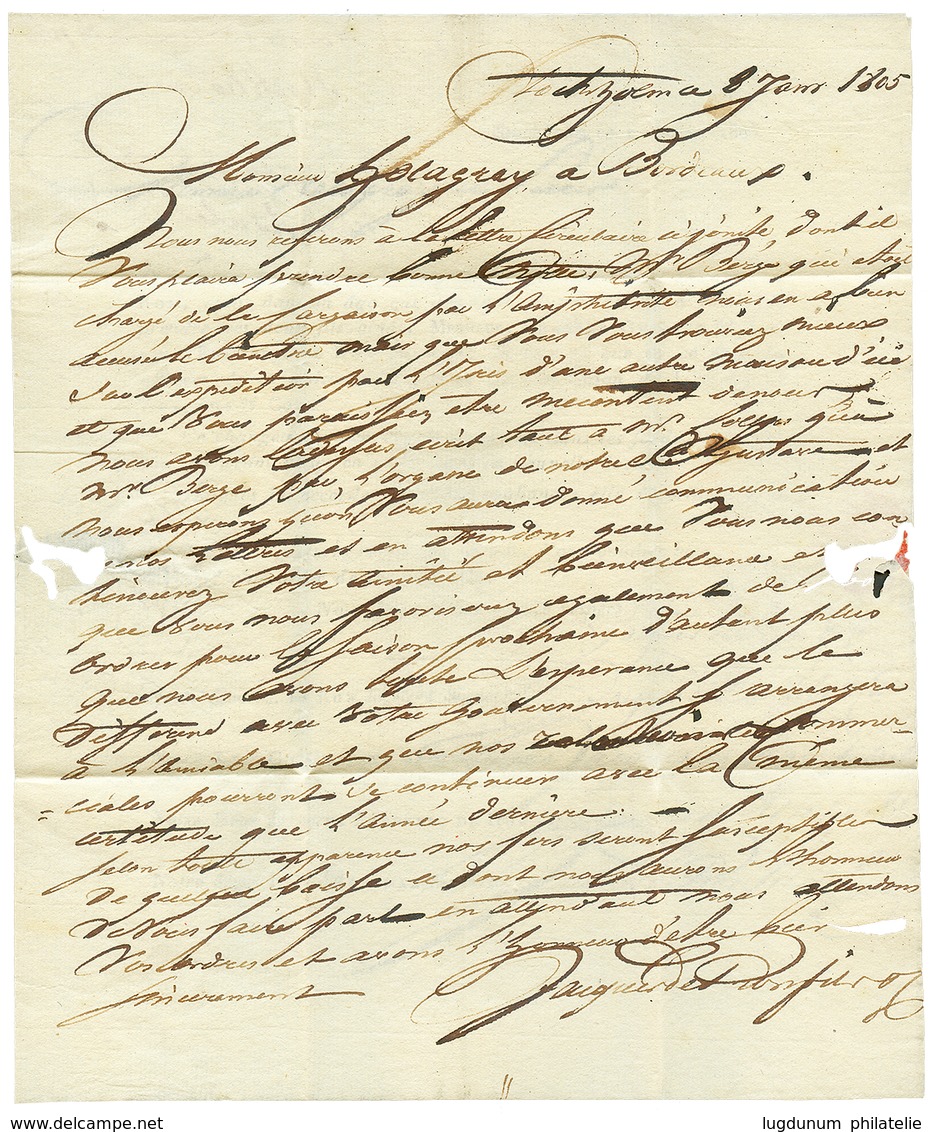 Stockholm ce 8 Janr 1805
Monsieur Delagray a Bordeaux.
Nous nous referons à la lettre Circulaire ci jointe dont il
Vous plaira prendre bonne Note, Mr. Berge qui etoit
chargé de la Cargaison par L'Amphitrite nous en a bien
accusé le bien être mais que Vous Vous trouviez mieux
sur l'expedition par L'Iris d'une autre maison d'ici
et que Vous paraissiez etre mecontent de nous
nous avons la dessus ecrit tant a Mr. qu'a
Mr. Berge par L'organe de notre Gustave et
nous esperons qu'on Vous aura donné communication
de nos Lettres et en attendons que Vous nous con
tinuerez Votre amitié et bienveillance et
que Vous nous favoriserez egalement de
ordres pour la saison prochaine d'autant plus
que nous avons toute L'esperance que le
differend avec Votre Gouvernement s'arrangera
à L'amiable et que nos relations Commer-
=ciales pourront se continuer avec la même
certitude que L'Année dernière.
selon toute apparence nos fers seront susceptibles
de quelque baisse et dont nous aurons L'honneur
de Vous faire part en attendant nous attendons
Vos ordres et avons L'honneur d'etre bien
sincerement
lugdunum philatelie
www.delcampe.net